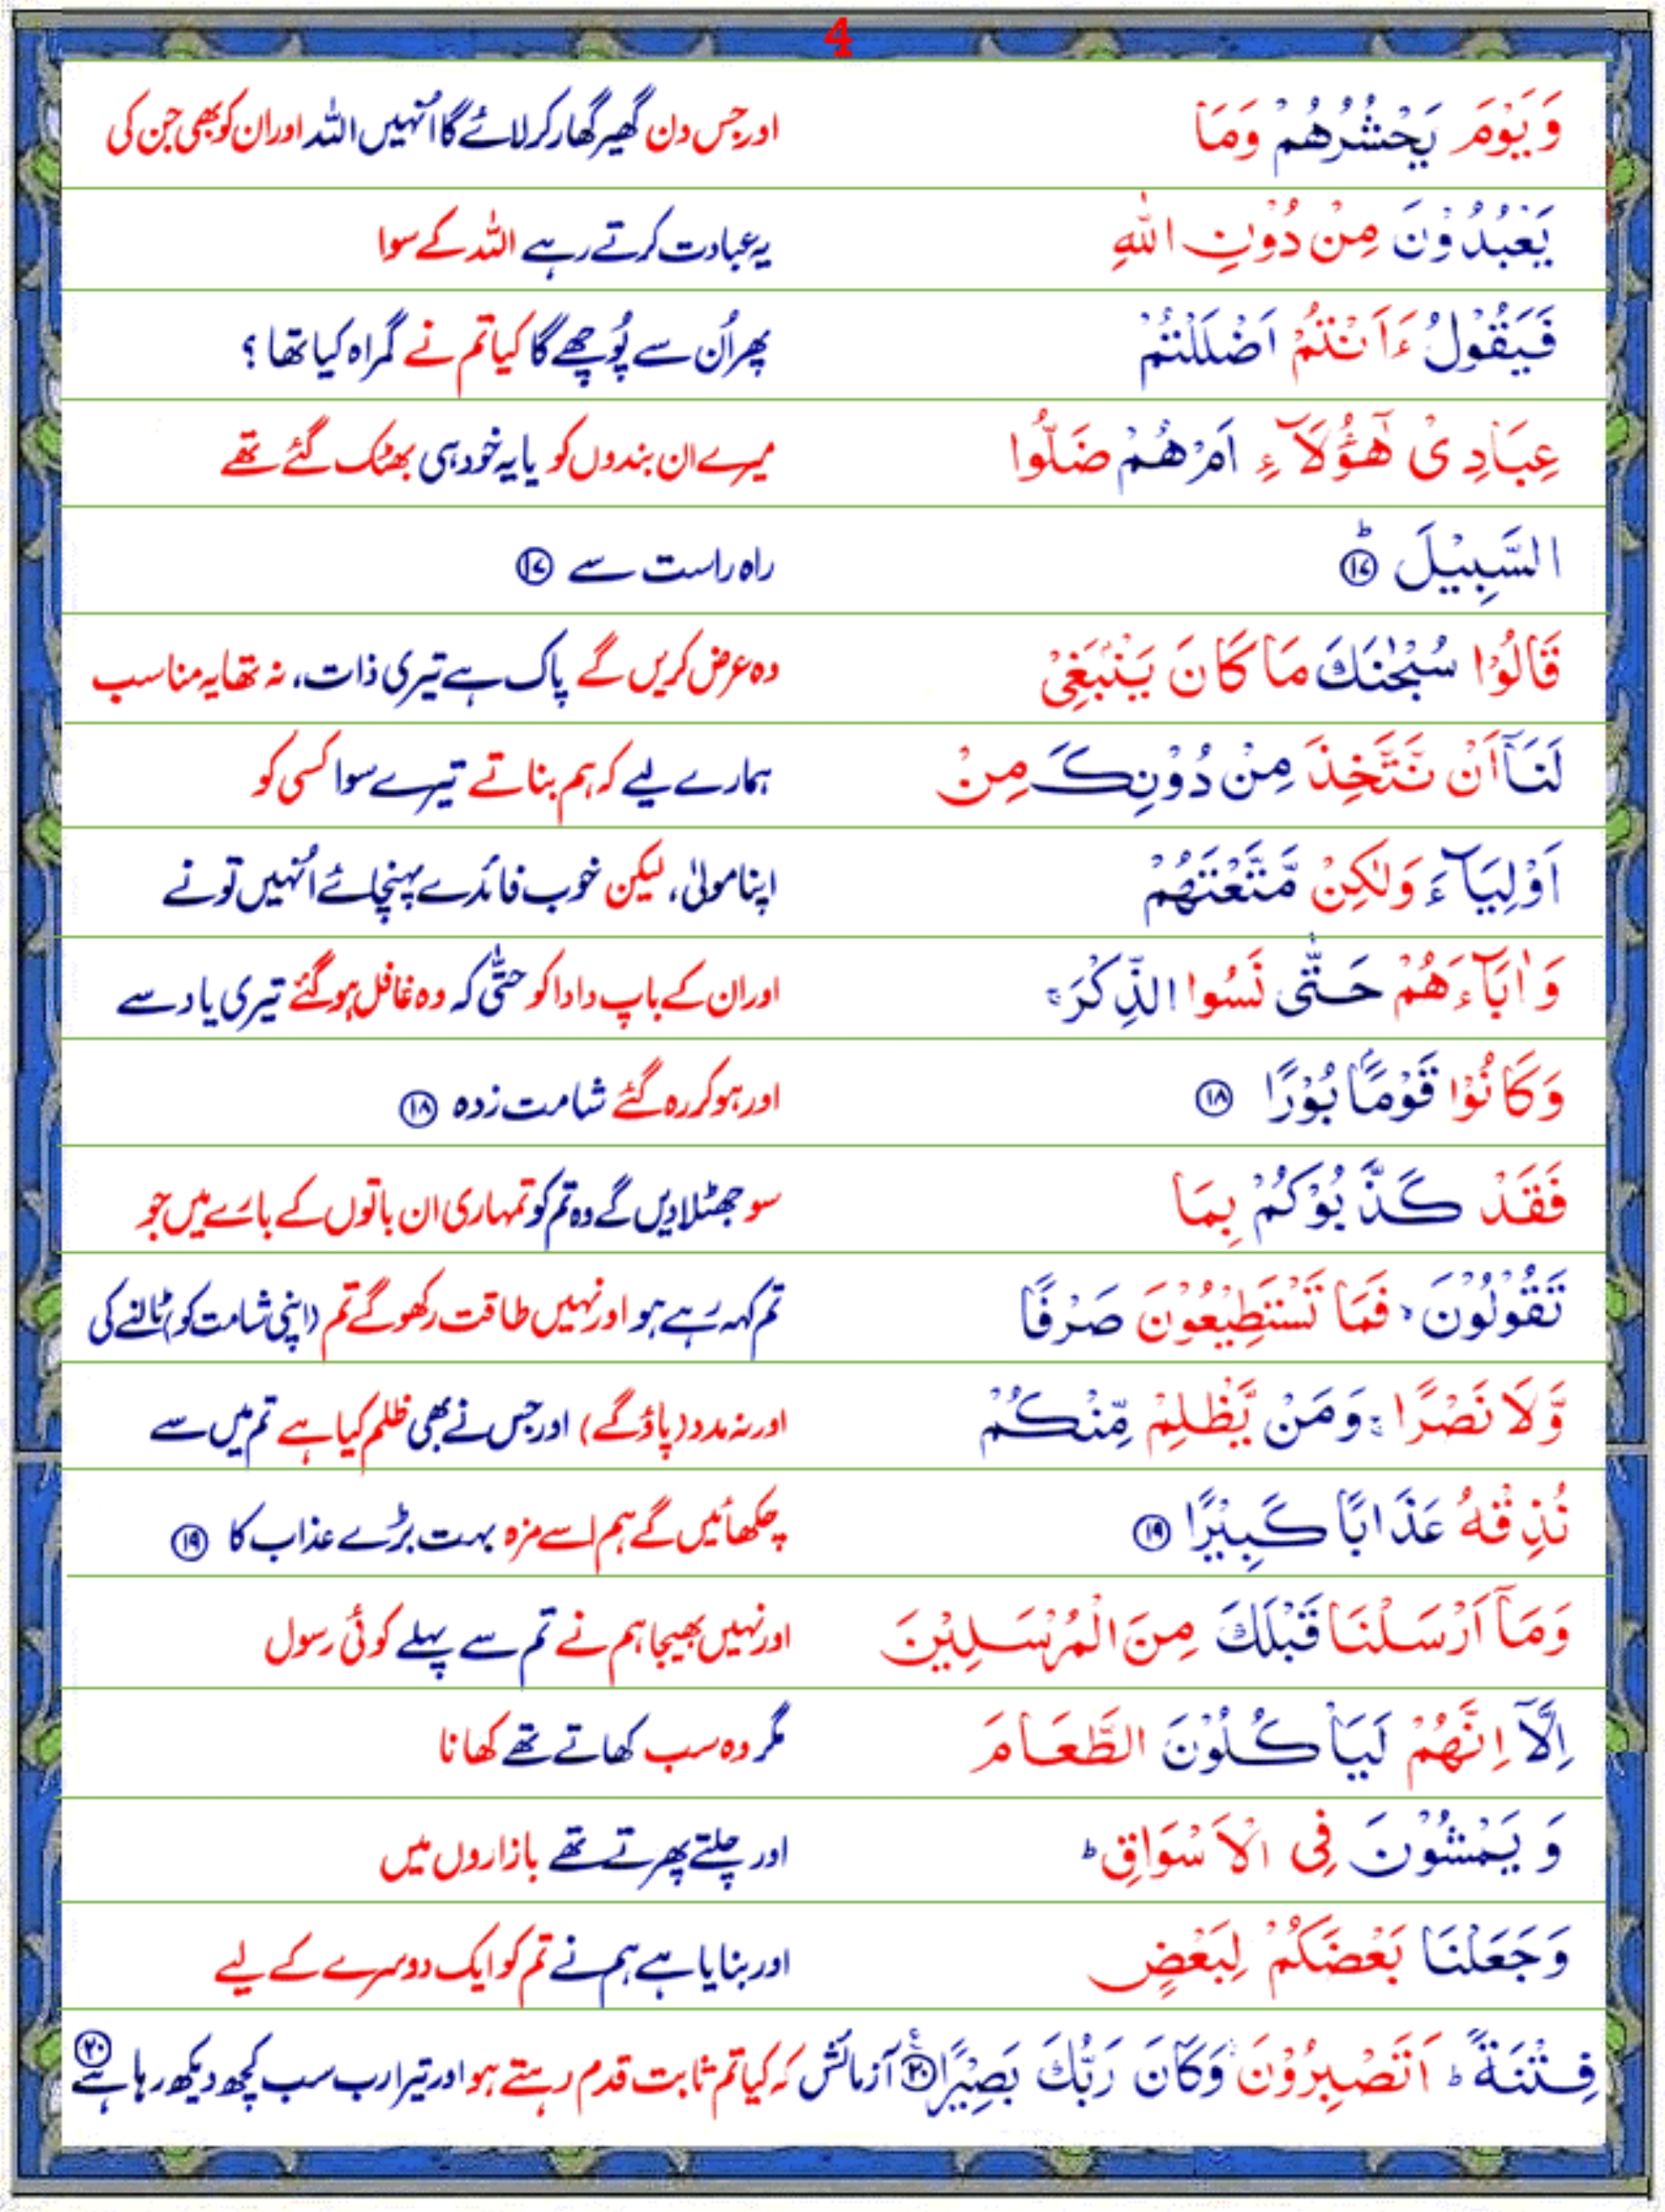 4
وَيَوْمَ يَحْشُرُهُمْ وَمَا اور جس دن گھیر گھار کر لائے گا اُنہیں اللہ اور ان کو بھی جن کی
يَعْبُدُوْنَ مِنْ دُوْنِ اللّٰهِ یہ عبادت کرتے رہے اللہ کے سوا
فَيَقُوْلُ ءَاَنْتُمْ اَضْلَلْتُمْ پھر اُن سے پُوچھے گا کیا تم نے گمراہ کیا تھا ؟
عِبَادِىْ هٰٓؤُلَآءِ اَمْ هُمْ ضَلُّوا میرے ان بندوں کو یا یہ خود ہی بھٹک گئے تھے
السَّبِيْلَ ؕ ۱۷ راہ راست سے ۱۷
قَالُوْا سُبْحٰنَكَ مَا كَانَ يَنْۢبَغِىْ وہ عرض کریں گے پاک ہے تیری ذات، نہ تھا یہ مناسب
لَنَاۤ اَنْ نَّتَّخِذَ مِنْ دُوْنِكَ مِنْ ہمارے لیے کہ ہم بناتے تیرے سوا کسی کو
اَوْلِيَآءَ وَلٰكِنْ مَّتَّعْتَهُمْ اپنا مولیٰ، لیکن خوب فائدے پہنچائے اُنہیں تو نے
وَاٰبَآءَهُمْ حَتّٰى نَسُوا الذِّكْرَ ۚ اور ان کے باپ دادا کو حتّٰی کہ وہ غافل ہو گئے تیری یاد سے
وَكَانُوْا قَوْمًۢا بُوْرًا ۱۸ اور ہو کر رہ گئے شامت زدہ ۱۸
فَقَدْ كَذَّبُوْكُمْ بِمَا سو جھٹلا دیں گے وہ تم کو تمہاری ان باتوں کے بارے میں جو
تَقُوْلُوْنَ ۙ فَمَا تَسْتَطِيْعُوْنَ صَرْفًا تم کہہ رہے ہو اور نہیں طاقت رکھو گے تم (اپنی شامت کو) ٹالنے کی
وَّلَا نَصْرًا ۚ وَمَنْ يَّظْلِمْ مِّنْكُمْ اور نہ مدد (پاؤ گے) اور جس نے بھی ظلم کیا ہے تم میں سے
نُذِقْهُ عَذَابًا كَبِيْرًا ۱۹ چکھائیں گے ہم اسے مزہ بہت بڑے عذاب کا ۱۹
وَمَاۤ اَرْسَلْنَا قَبْلَكَ مِنَ الْمُرْسَلِيْنَ اور نہیں بھیجا ہم نے تم سے پہلے کوئی رسول
اِلَّاۤ اِنَّهُمْ لَيَاْكُلُوْنَ الطَّعَامَ مگر وہ سب کھاتے تھے کھانا
وَيَمْشُوْنَ فِى الْاَسْوَاقِ ؕ اور چلتے پھرتے تھے بازاروں میں
وَجَعَلْنَا بَعْضَكُمْ لِبَعْضٍ اور بنایا ہے ہم نے تم کو ایک دوسرے کے لیے
فِتْنَةً ؕ اَتَصْبِرُوْنَ ۚ وَكَانَ رَبُّكَ بَصِيْرًا ۲۰ آزمائش کہ کیا تم ثابت قدم رہتے ہو اور تیرا رب سب کچھ دیکھ رہا ہے ۲۰